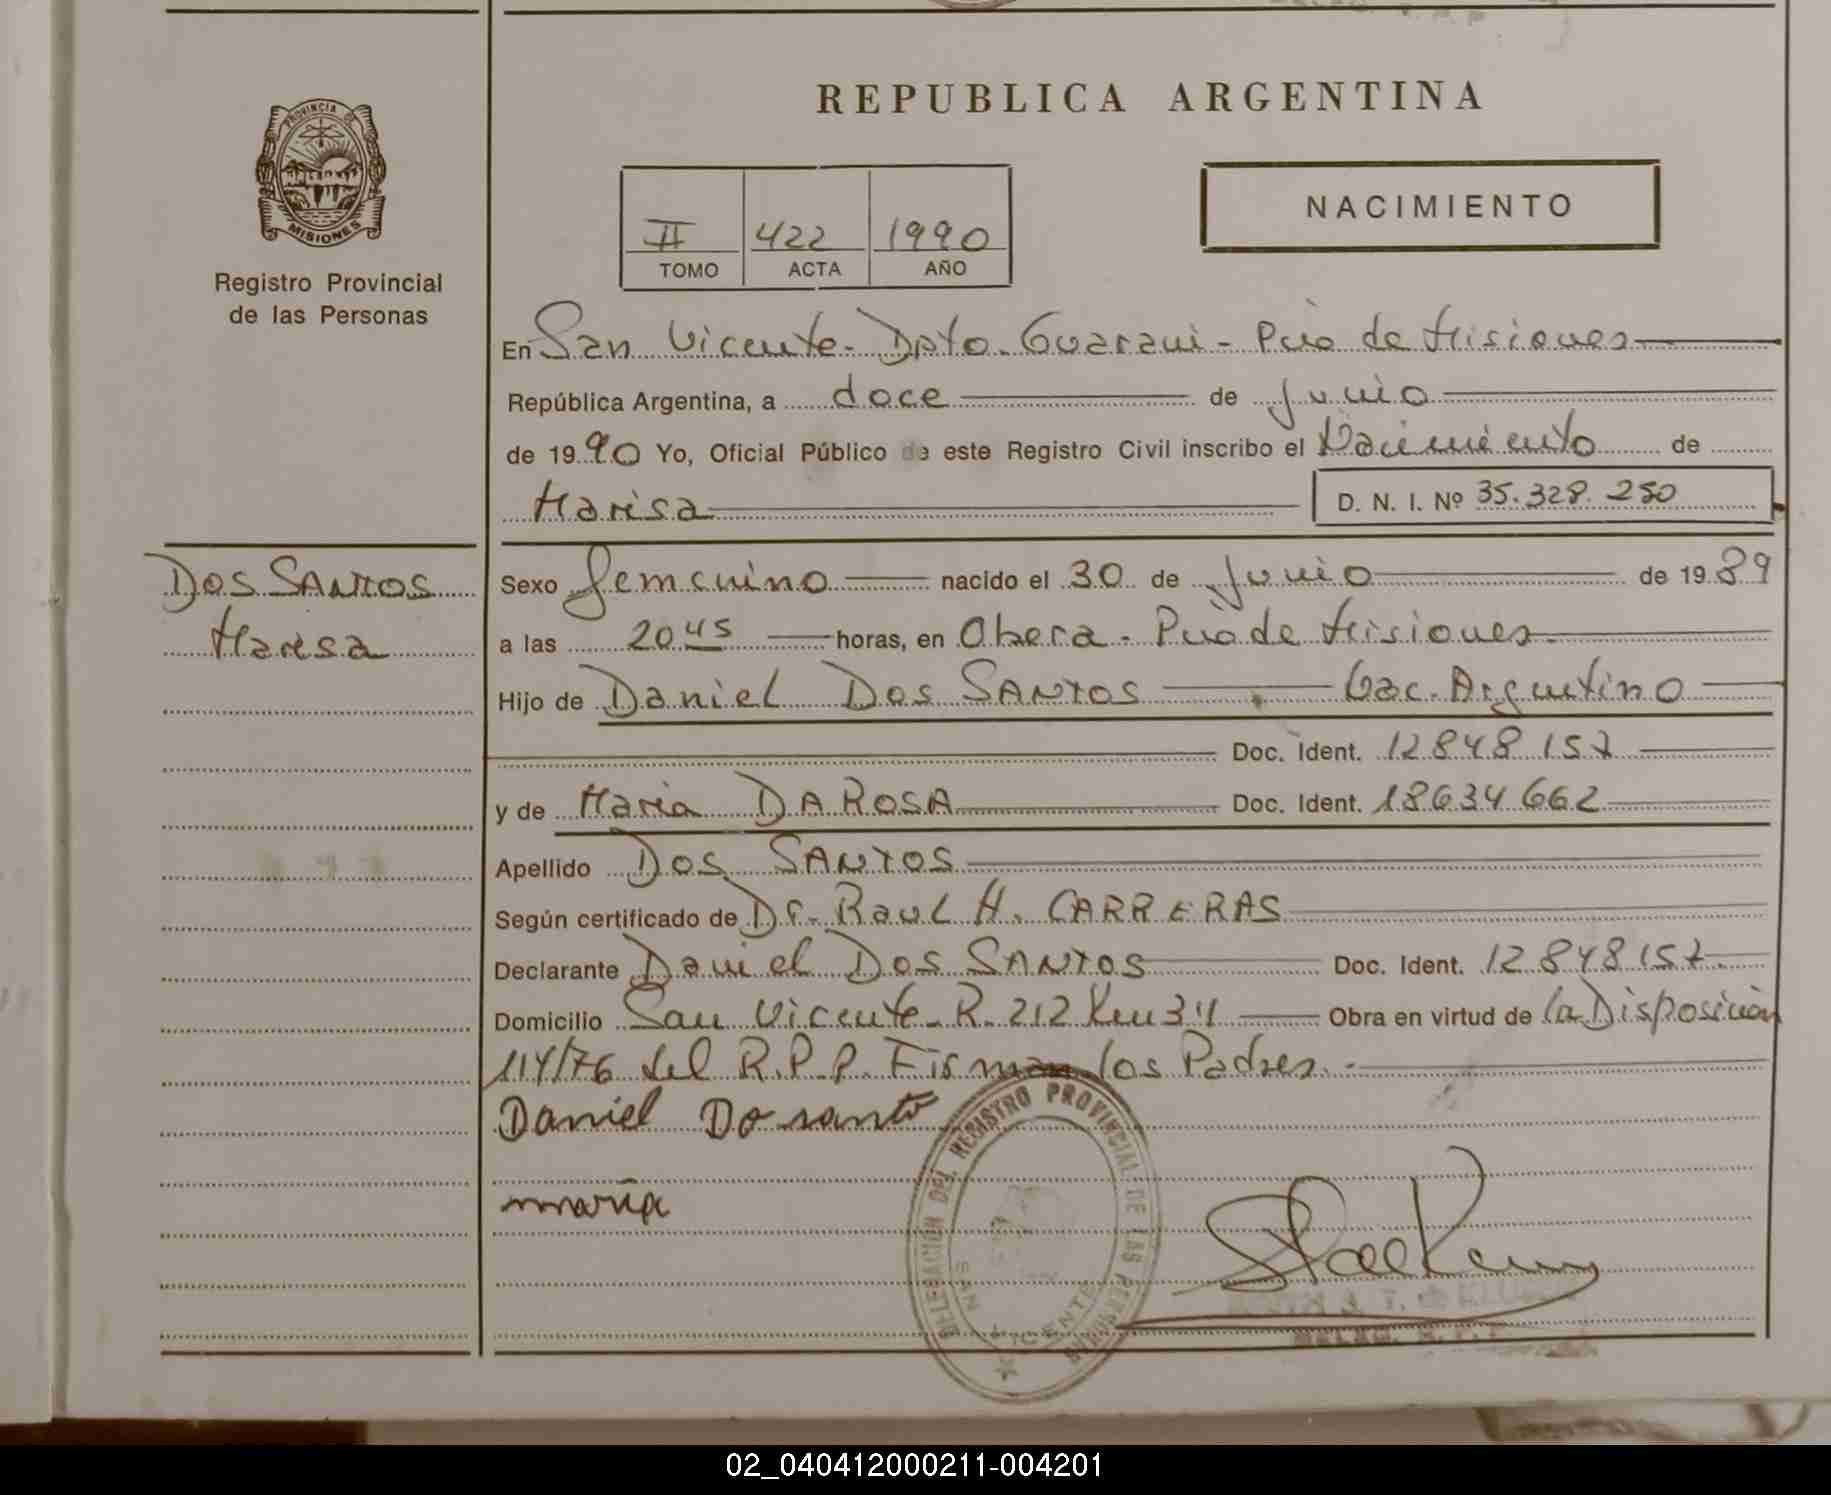 REPUBLICA ARGENTINA
PROVINCIA DE MISIONES
Registro Provincial
de las Personas
II 422 1990
TOMO ACTA AÑO
NACIMIENTO
En San Vicente - Dpto. Guarani - Pcia de Misiones
República Argentina, a doce de Junio
de 1990 Yo, Oficial Público de este Registro Civil inscribo el Nacimiento de
Marisa D. N. I. Nº 35.328.250
DOS SANTOS
Marisa
Sexo femenino nacido el 30 de Junio de 1989
a las 20 45 horas, en Obera - Pcia de Misiones
Hijo de Daniel DOS SANTOS Nac. Argentino
Doc. Ident. 12848157
y de Maria DA ROSA Doc. Ident. 18634662
Apellido DOS SANTOS
Según certificado de Dr. Raul H. CARRERAS
Declarante Daniel DOS SANTOS Doc. Ident. 12848157
Domicilio San Vicente - R. 212 Km 34 Obra en virtud de la Disposición
114/76 del R.P.P. Firman los Padres.
Daniel Do santo
maria
DELEGACIÓN DEL REGISTRO PROVINCIAL DE LAS PERSONAS
SAN VICENTE
DELEG. R. P. P.
02_040412000211-004201